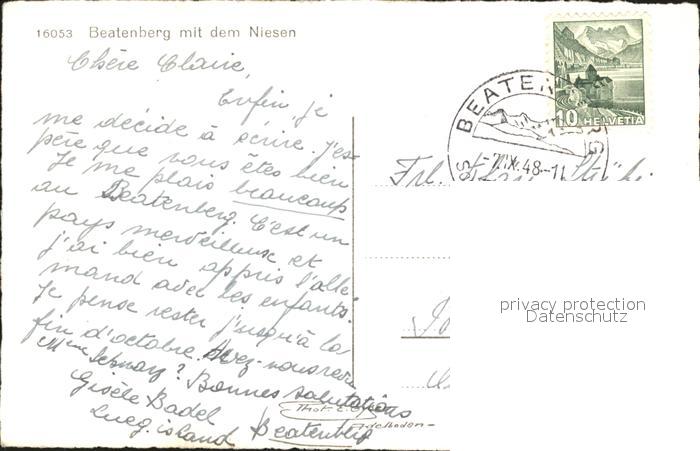 16053 Beatenberg mit dem Niesen
Chère Claire,
Enfin je
me décide à écrire. J'es-
père que vous êtes bien
Je me plais beaucoup
au Beatenberg. C'est un
pays merveilleux et
j'ai bien appris l'alle
mand avec les enfants.
Je pense rester jusqu'à la
fin d'octobre. Avez-vous revu
Mme ? Bonnes salutations
Gisèle Badel
Beatenberg
Phot.
Adelboden
10 HELVETIA
BEATENBERG
48-11
Frl.
privacy protection
Datenschutz